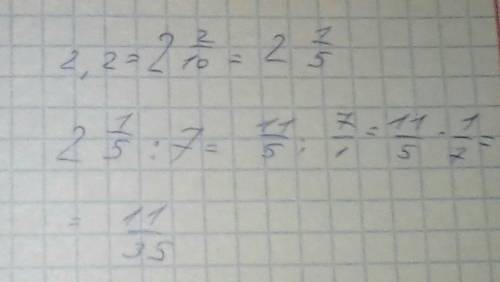 2,2 = 2 2/10 = 2 1/5
2 1/5 : 7 = 11/5 : 7/1 = 11/5 · 1/7 =
= 11/35